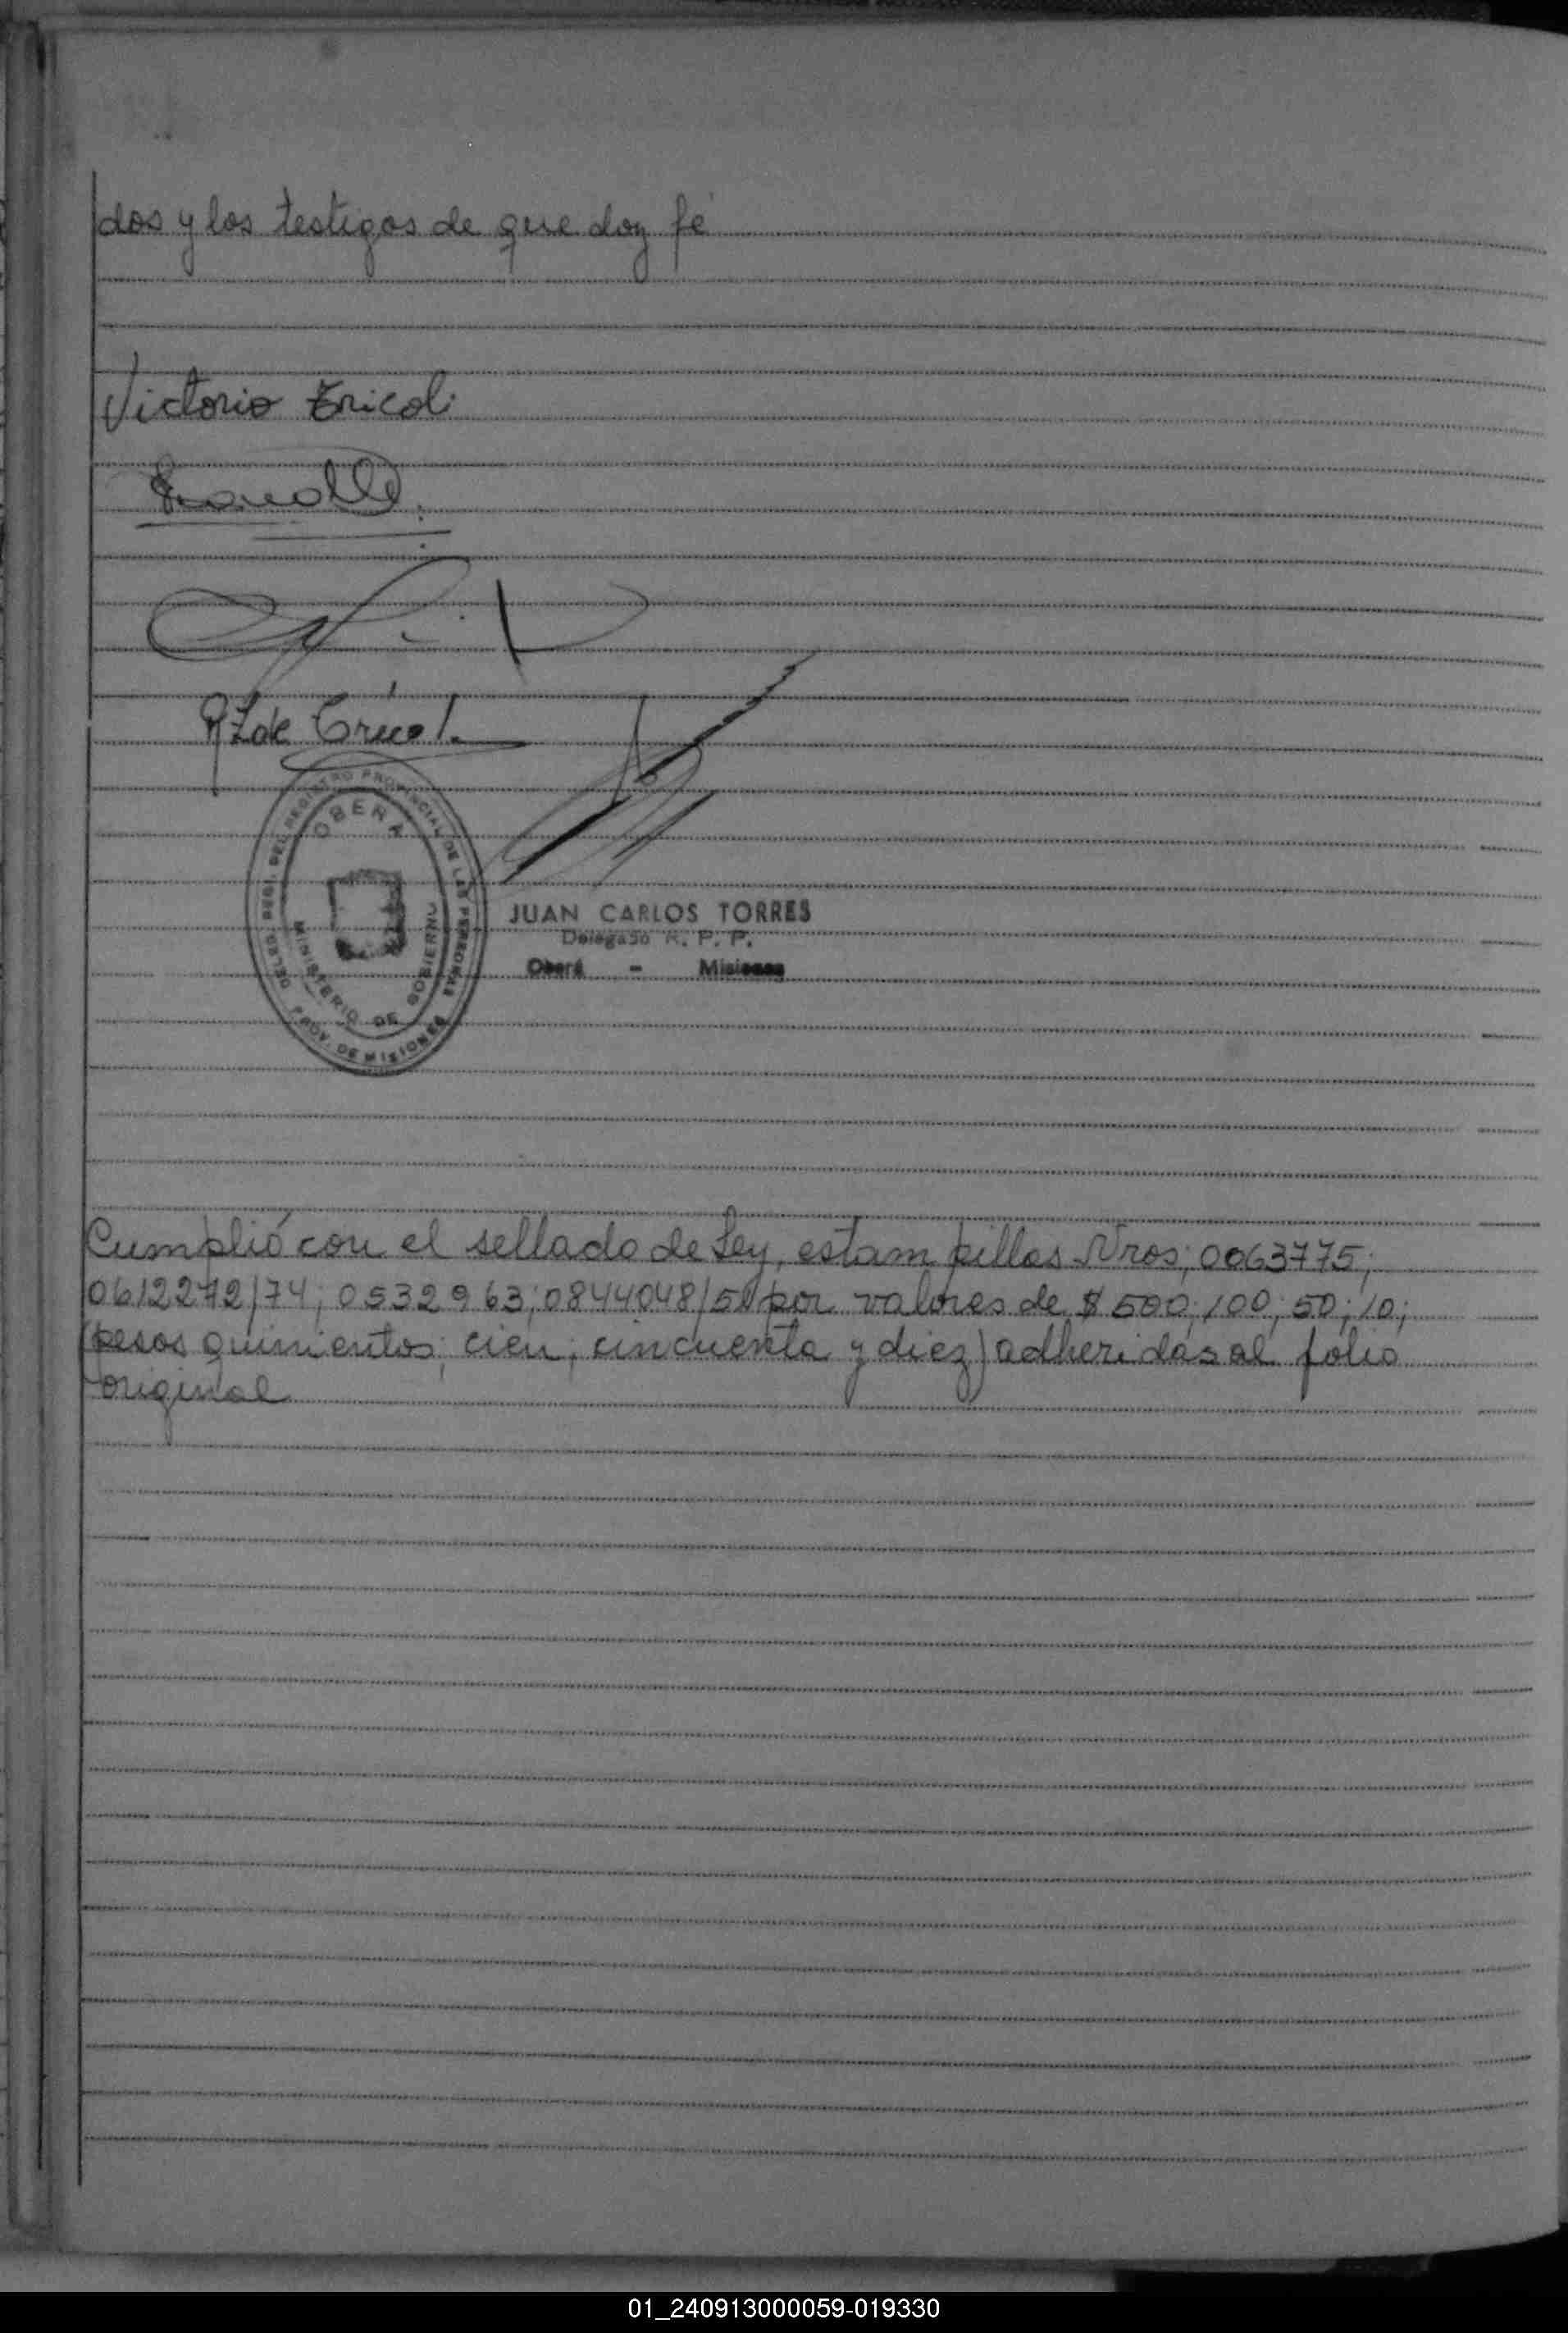 dos y los testigos de que doy fé
Victorio Tricoli
R Z de Tricoli
DELEG. REGI. DEL REGISTRO PROVINCIAL DE LAS PERSONAS
OBERA
MINISTERIO DE GOBIERNO
PROV. DE MISIONES
JUAN CARLOS TORRES
Delegado R. P. P.
Oberá - Misiones
Cumplió con el sellado de Ley, estampillas Nros; 0063775;
0612272/74; 0532963; 0844048/50 por valores de $ 500; 100; 50; 10;
(pesos quinientos; cien; cincuenta y diez) adheridas al folio
original
01_240913000059-019330